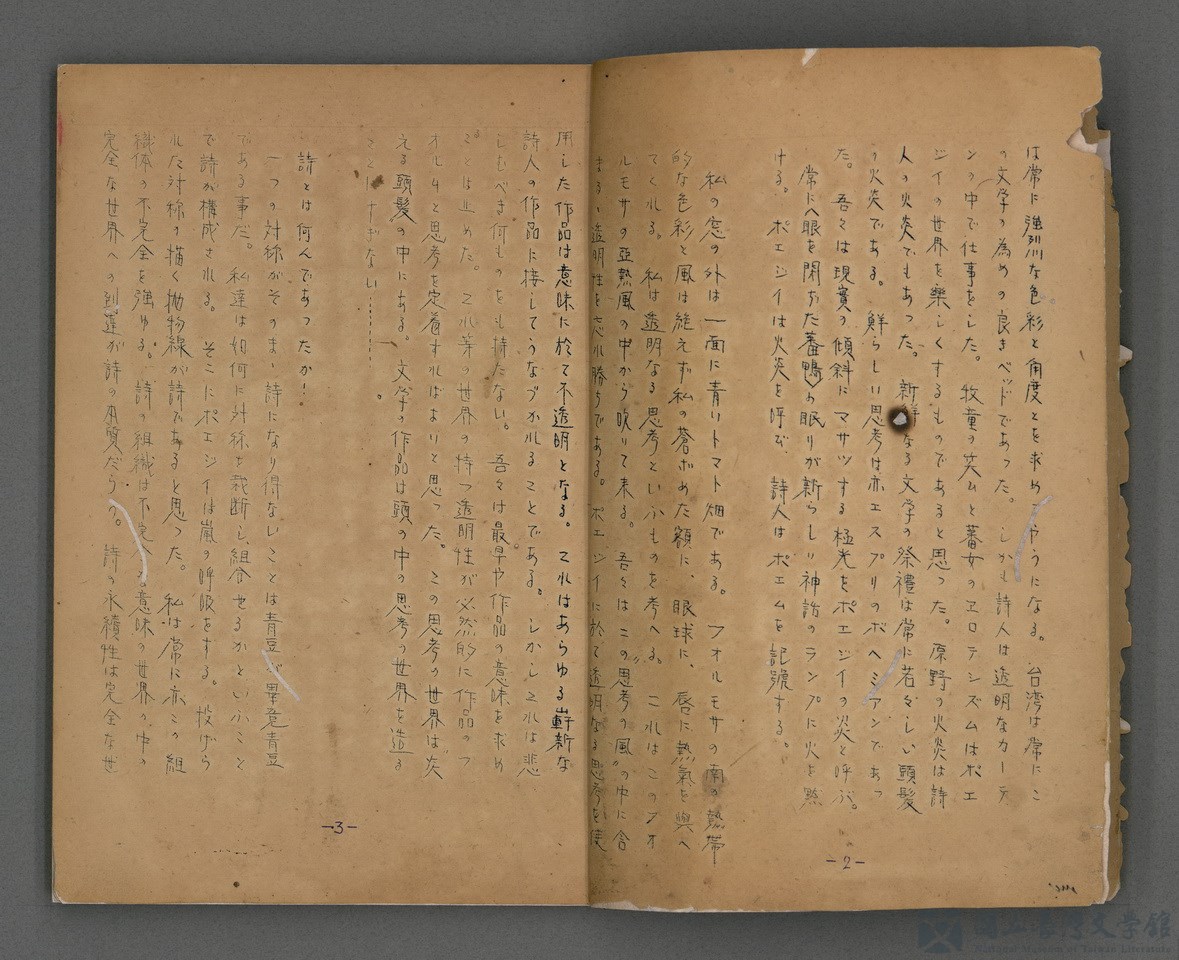 は常に強烈な色彩と角度とを求めやうになる。台湾は常にこ
の文学の為めの良きベッドであった。しかも詩人は透明なカーテ
ンの中で仕事をした。牧童の笑ムと蕃女のエロテシズムはポエ
ジイの世界を楽しくするものであると思った。原野の火炎は詩
人の火炎でもあった。新なる文学の祭禮は常に若々しい頭髪
の火炎である。鮮らしい思考は亦エスプリのボヘミアンであっ
た。吾々は現實の傾斜にマサツする極光をポエジイの炎と呼ぶ。
常に眼を開ぢた蕃鴨の眠りが新らしい神話のランプに火を點
ける。ポエジイは火炎を呼び、詩人はポエムを記號する。
私の窓の外は一面に青いトマト畑である。フォルモサの南の熱帯
的な色彩と風は絶えず私の蒼ざめた額に、眼球に、唇に熱氣を與へ
てくれる。私は透明なる思考といふものを考へる。これはこのフオ
ルモサの亞熱風の中から吹いて来る。吾々はこの"思考の風"の中に含
まる、透明性を忘れ勝ちである。ポエジイに於て透明なる思考を使
-2-
用した作品は意味に於て不透明となる。これはあらゆる嶄新な
詩人の作品に接してうなづかれることである。しかしこれは悲
しむべき何ものをも持たない。吾々は最早や作品の意味を求め
ることは止めた。これ等の世界の持つ透明性が必然的に作品のフ
オルムと思考を定着すればよいと思った。この思考の世界は、炎
える頭髪の中にある。文学の作品は頭の中の思考の世界を造る
ことにすぎない………。
詩とは何んであったか!
一つの対称がそのまゝ詩になり得ないことは青豆が畢竟青豆
である事だ。私達は如何に対称を裁断し、組合せるかといふこと
で詩が構成される。そこにポエジイは嵐の呼吸をする。投げら
れた対称の描く抛物線が詩であると思った。私は常に亦この組
織体の不完全を強ゆる。詩の組織は不完全る。意味の世界の中の
完全な世界への到達が詩の本質だらう。詩の永續性は完全なせ
-3-
国立台湾文学館
National Museum of Taiwan Literature